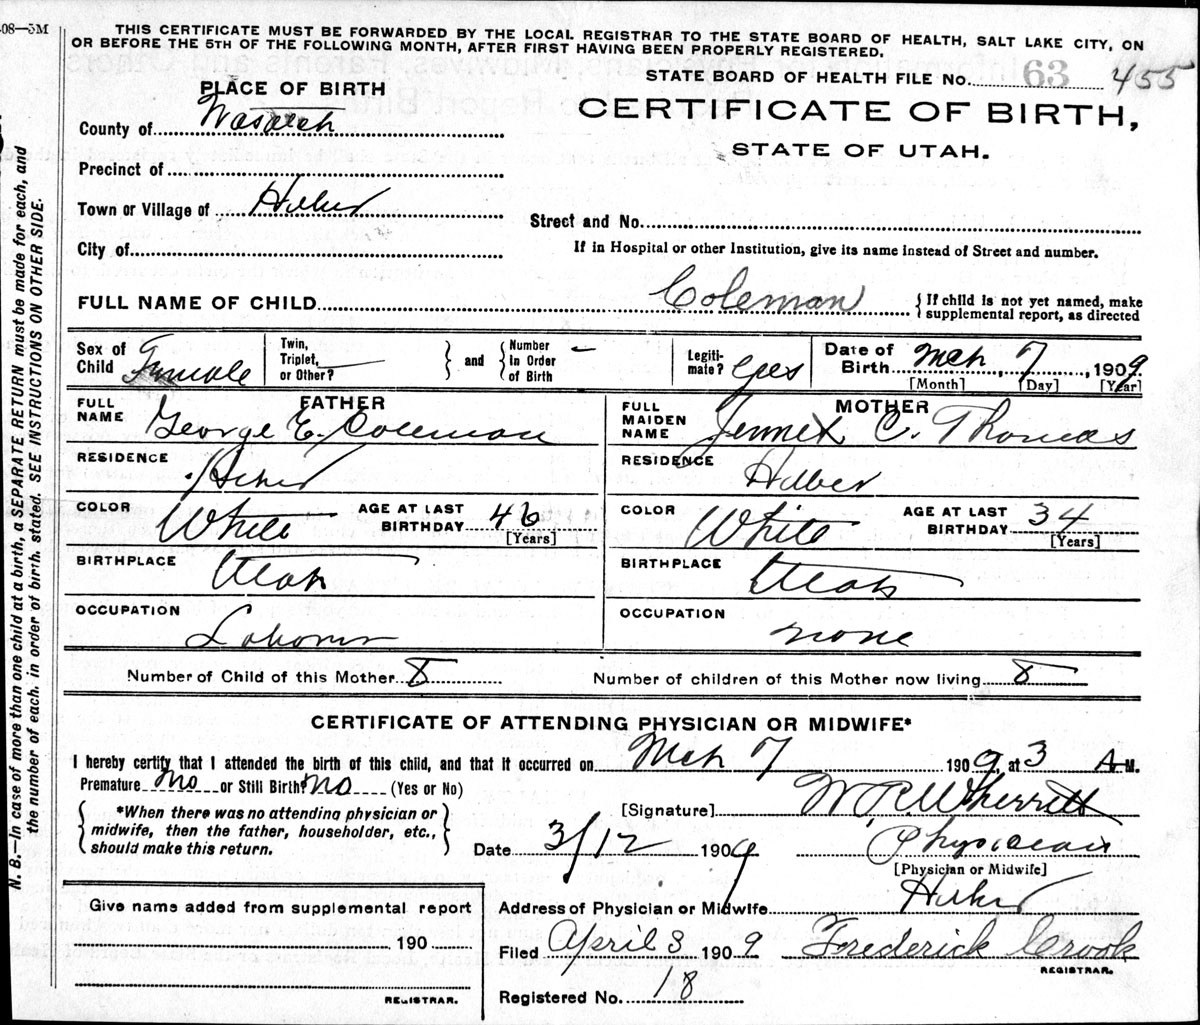 -08—5M
THIS CERTIFICATE MUST BE FORWARDED BY THE LOCAL REGISTRAR TO THE STATE BOARD OF HEALTH, SALT LAKE CITY, ON
OR BEFORE THE 5TH OF THE FOLLOWING MONTH, AFTER FIRST HAVING BEEN PROPERLY REGISTERED.
STATE BOARD OF HEALTH FILE No. 63 455
PLACE OF BIRTH
CERTIFICATE OF BIRTH,
STATE OF UTAH.
County of Wasatch
Precinct of
Town or Village of Heber
Street and No.
City of
If in Hospital or other Institution, give its name instead of Street and number.
FULL NAME OF CHILD Coleman { If child is not yet named, make
supplemental report, as directed
Sex of Child Female
Twin, Triplet, or Other? —
and
Number in Order of Birth –
Legitimate? Yes
Date of Birth Mch 7, 1909
[Month] [Day] [Year]
FATHER
FULL NAME George E. Coleman
RESIDENCE Heber
COLOR White AGE AT LAST BIRTHDAY 46
[Years]
BIRTHPLACE Utah
OCCUPATION Laborer
MOTHER
FULL MAIDEN NAME C. Thomas
RESIDENCE Heber
COLOR White AGE AT LAST BIRTHDAY 34
[Years]
BIRTHPLACE Utah
OCCUPATION none
Number of Child of this Mother 8 Number of children of this Mother now living 8
CERTIFICATE OF ATTENDING PHYSICIAN OR MIDWIFE*
I hereby certify that I attended the birth of this child, and that it occurred on Mch 7 1909, at 3 A M.
Premature no or Still Birth? no (Yes or No)
{ *When there was no attending physician or
midwife, then the father, householder, etc.,
should make this return. }
[Signature] W. R. Wherritt
Date 3/12 1909 Physician
[Physician or Midwife]
Address of Physician or Midwife Heber
Filed April 3 1909 Frederick Crook
REGISTRAR.
Registered No. 18
Give name added from supplemental report
190
REGISTRAR.
N. B.—In case of more than one child at a birth, a SEPARATE RETURN must be made for each, and
the number of each, in order of birth, stated. SEE INSTRUCTIONS ON OTHER SIDE.